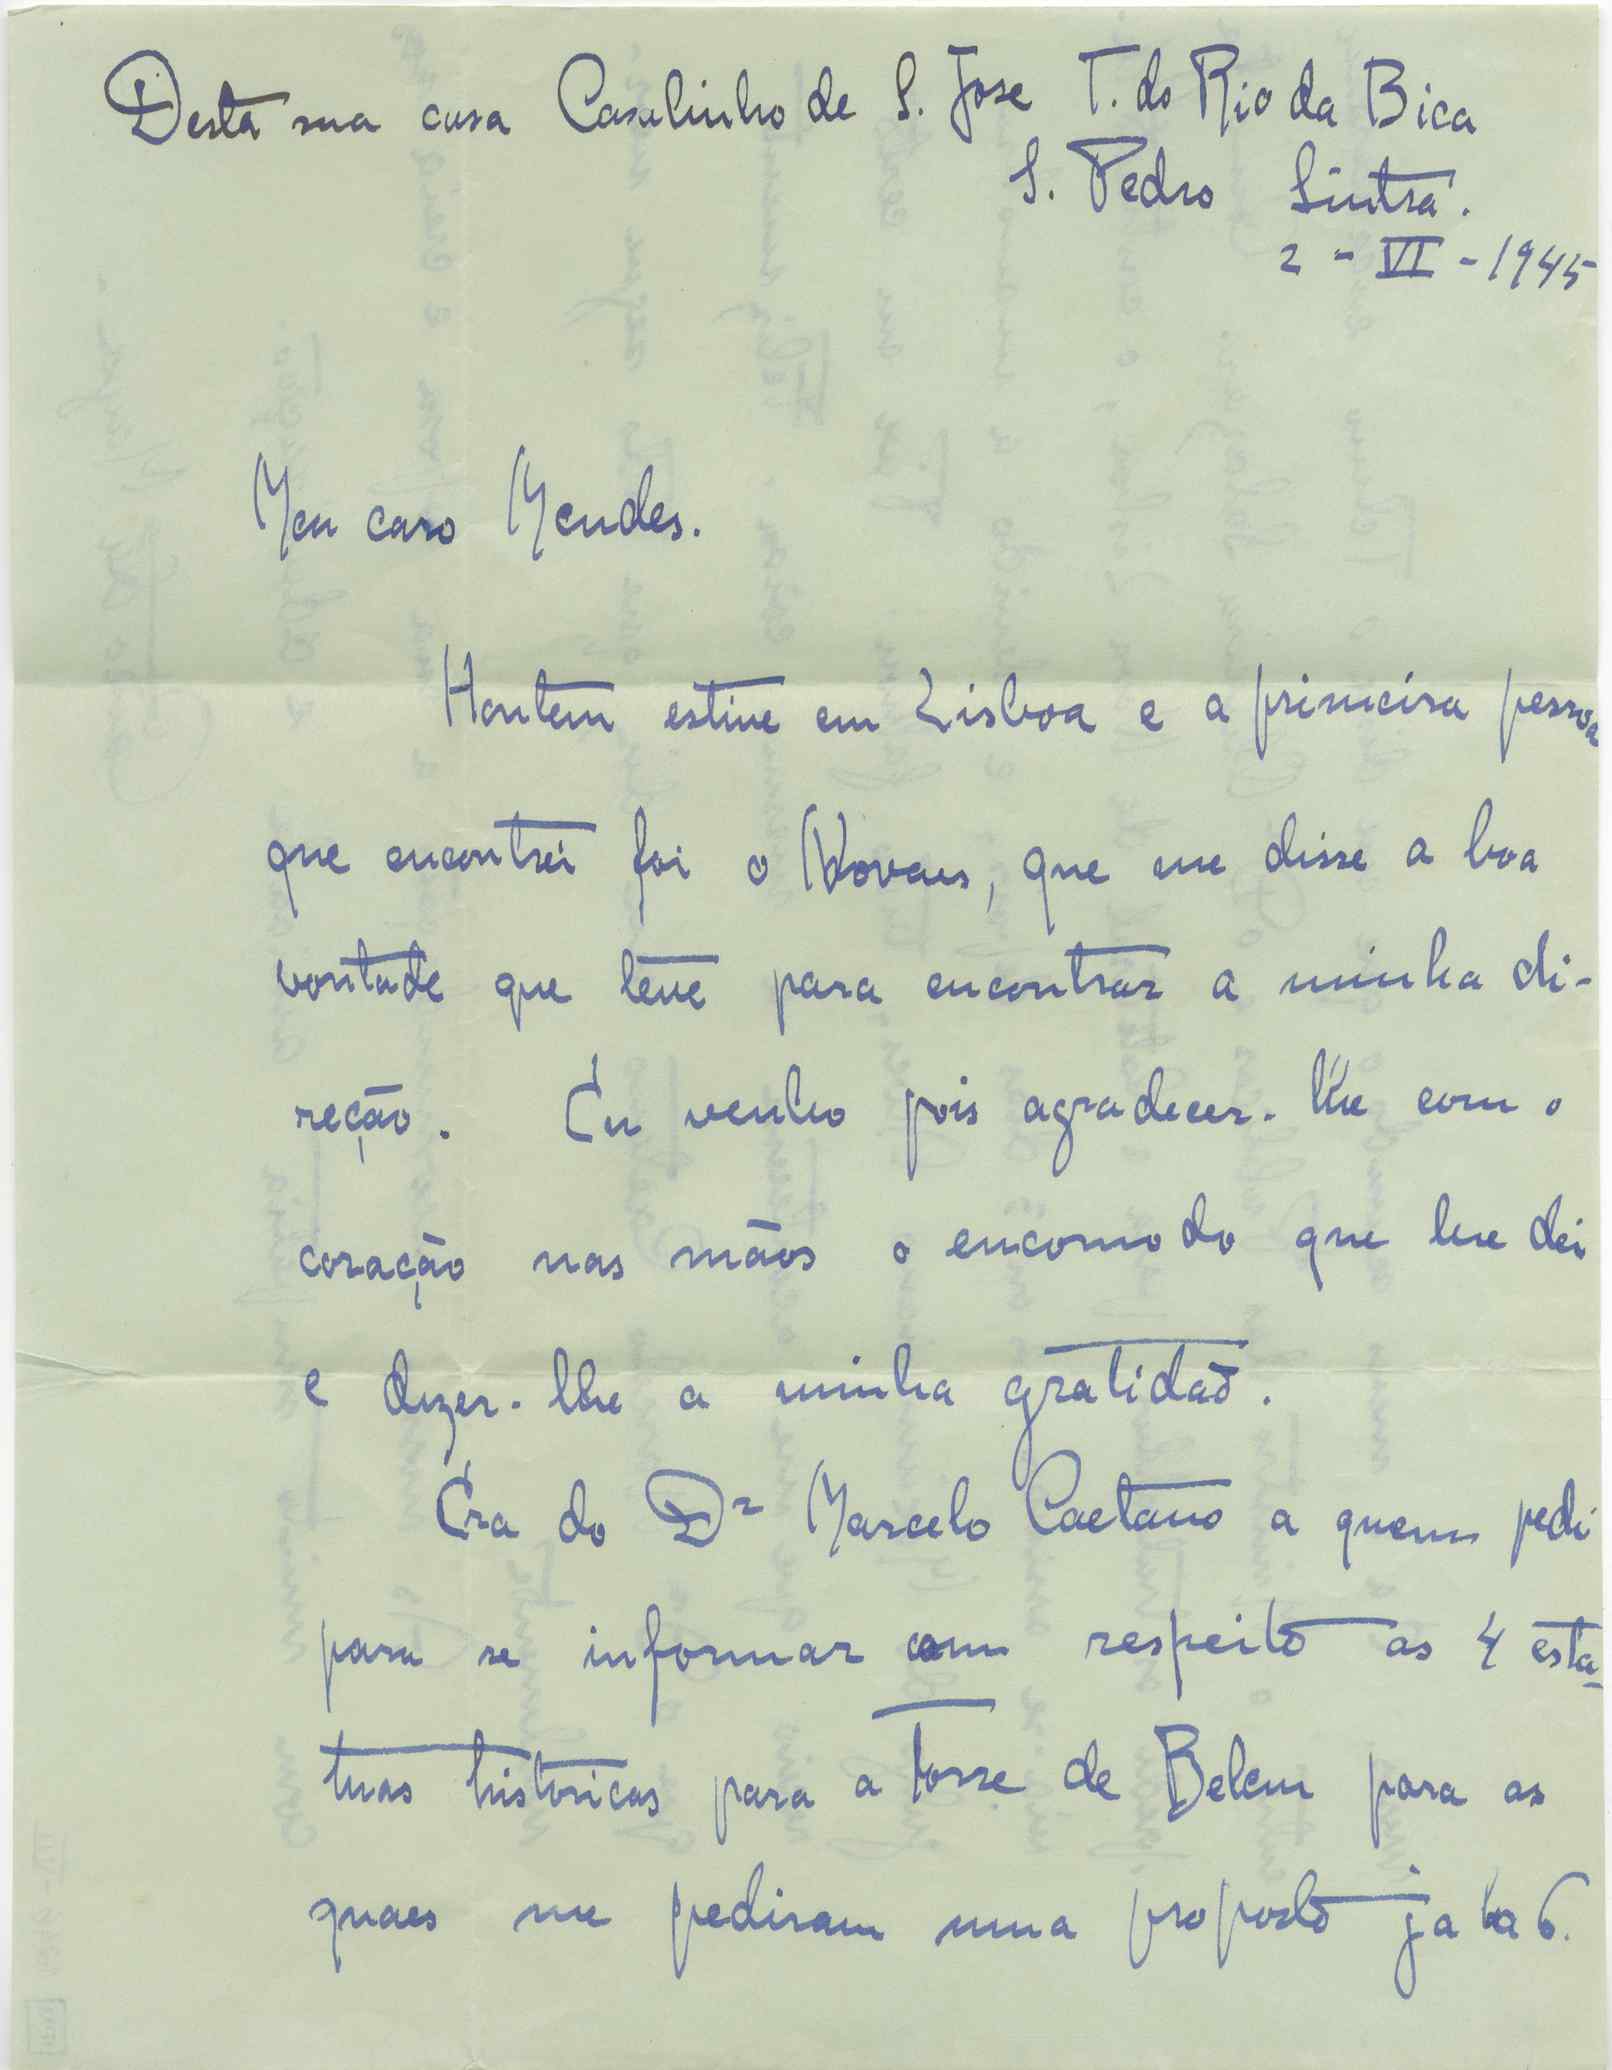 Desta sua casa Casalinho de S. Jose T. do Rio da Bica
S. Pedro Sintra.
2 - VI - 1945
Meu caro Mendes.
Hontem estive em Lisboa e a primeira pessoa
que encontrei foi o Novaes, que me disse a boa
vontade que teve para encontrar a minha di-
reção. Eu venho pois agradecer-lhe com o
coração nas mãos o encomodo que lhe dei
e dizer-lhe a minha gratidão.
Era do Dr Marcelo Caetano a quem pedi
para se informar com respeito as 4 esta-
tuas historicas para a Torre de Belem para as
quaes me pediram uma proposta ja ha 6.